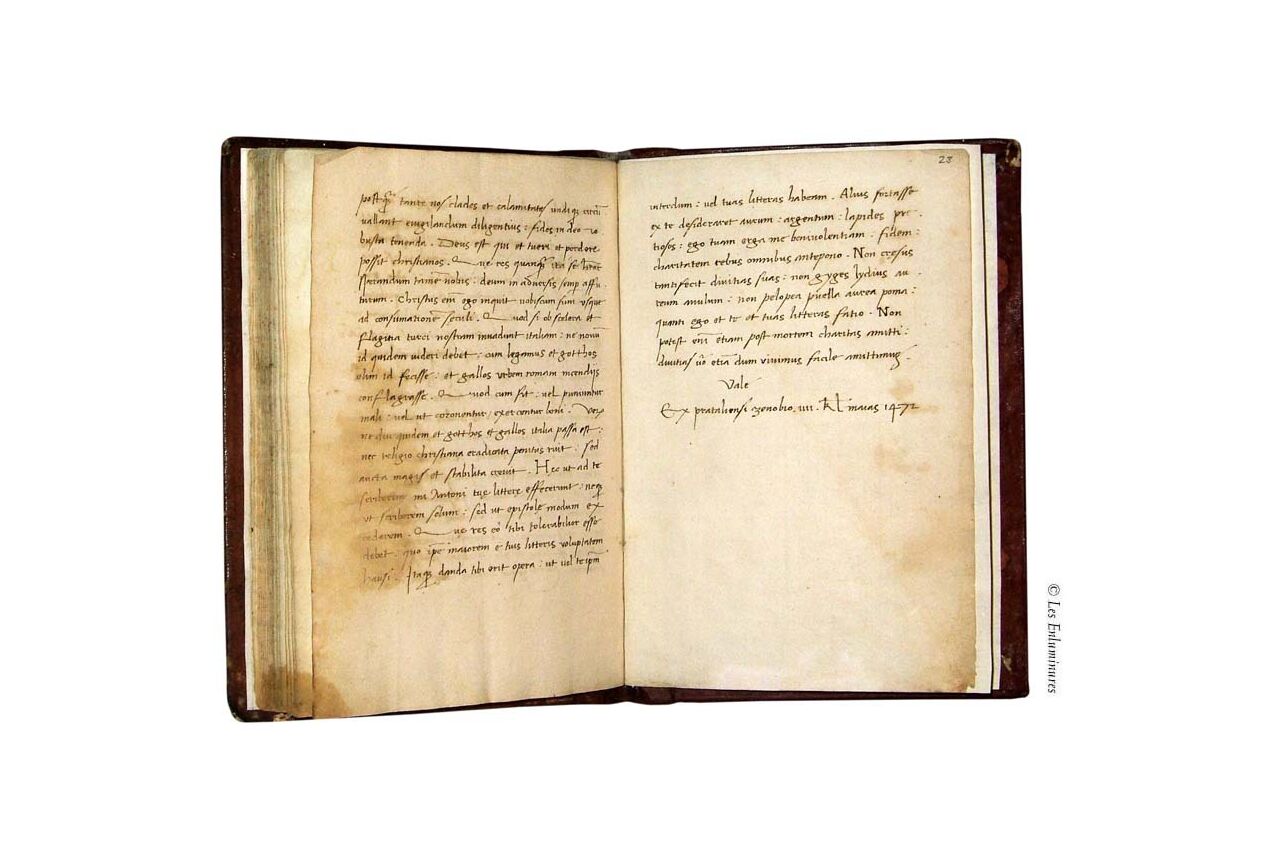 postq̄ tante nos clades et calamitates undiq; circū
vallant evigilandum diligentius : fides in deo ro
busta tenenda . Deus est qui et tueri et perdere
possit christianos . Que res quanq̄ ita se
sperandum tamē nobis . deum in adversis semp affu
turum . Christus enī ego inquit vobiscum sum usque
ad consumationē seculi . Quod si ob scelera et
flagitia turci nostram invadunt italiam : ne novū
id quidem videri debet : cum legamus et gotthos
olim id fecisse : et gallos urbem romam incendijs
conflagrasse . Quod cum fit : vel puniuntur
mali : vel ut coronentur , exercentur boni . Veru
ne diu quidem et gotthos et gallos italia passa est :
nec religio christiana eradicata penitus ruit : Sed
aucta magis et stabilita crevit . Hec ut ad te
scriberem mi Antoni tuę litterę effecerunt : neq;
ut scriberem solum : sed ut epistolę modum ex
cederem . Que res eo tibi tolerabilior esse
debet : quo ipē maiorem e tuis litteris voluptatem
hausi . Itaq; danda tibi erit opera : ut vel te ipm̄
23
interdum : vel tuas litteras habeam . Alius fortasse
ex te desideraret aurum : argentum : lapides pre
tiosos : ego tuam erga me benivolentiam : fidem :
charitatem rebus omnibus antepono . Non cresus
tantifecit divitias suas : non gyges lydius au
reum anulum : non pelopea puella aurea poma :
quanti ego et te et tuas litteras facio . Non
potest enī etiam post mortem charitas amitti :
divitias v̄o etiā dum vivimus facile amittimus .
Vale
Ex prataliensi zenobio . iiii . Kl maias 1472
© Les Enluminures